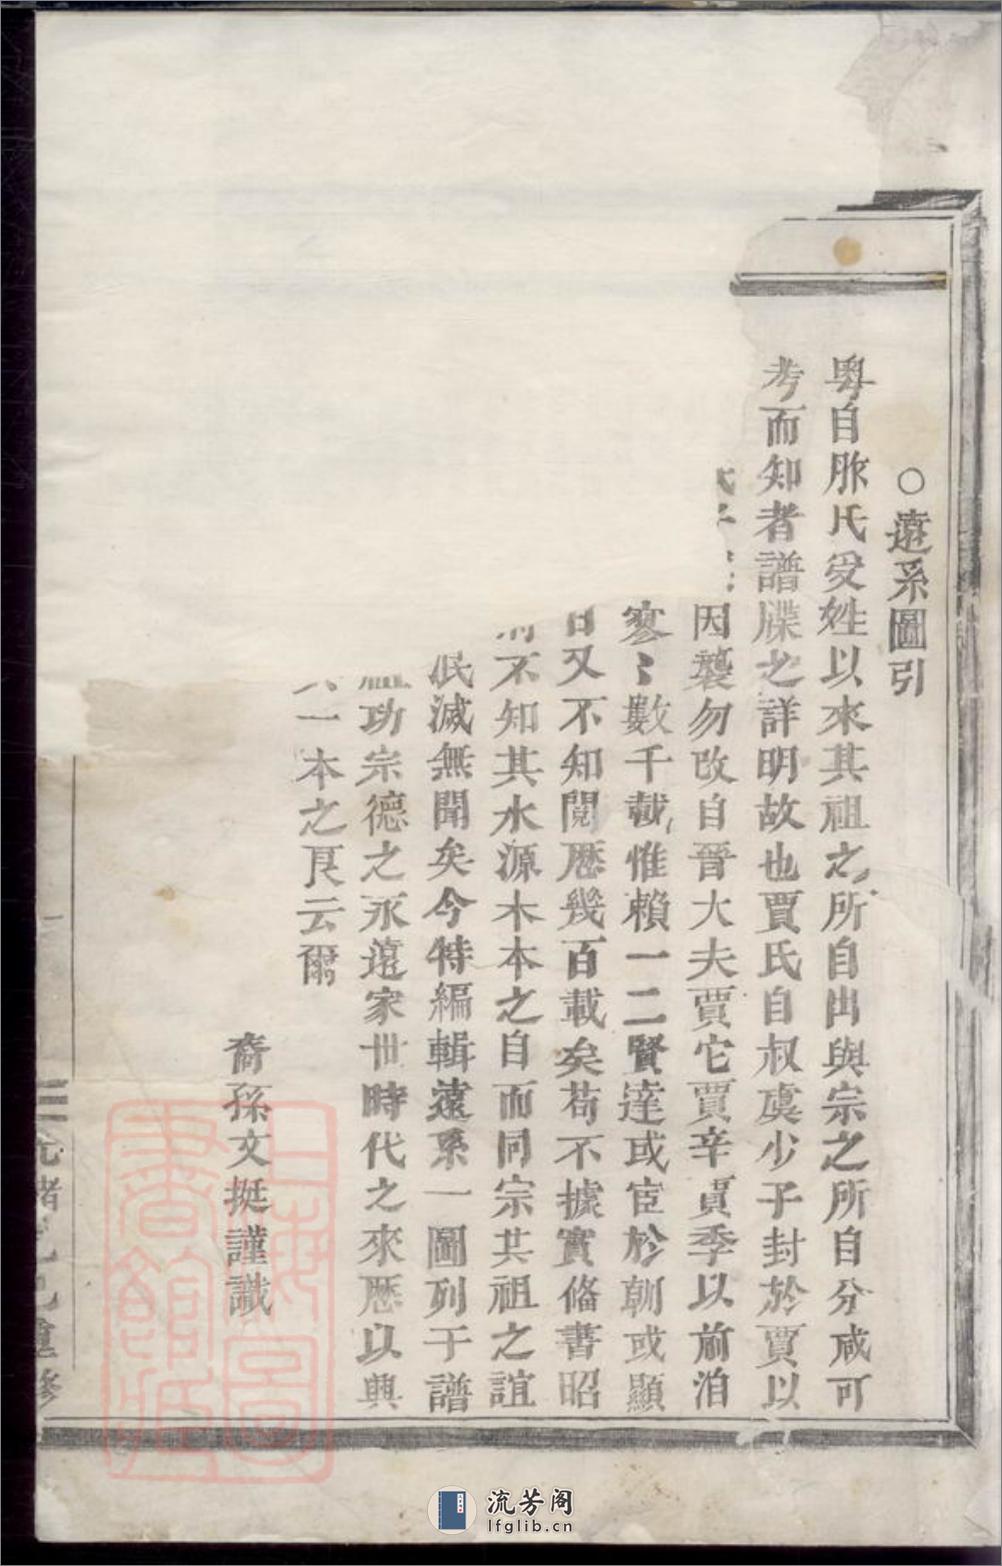 ○遠系圖引
粵自胙氏受姓以來其祖之所自出與宗之所自分咸可
考而知者譜牒之詳明故也賈氏自叔虞少子封於賈以
因襲勿改自晉大夫賈它賈辛賈季以前洎
寥〻數千載惟賴一二賢達或宦於朝或顯
又不知閱歷幾百載矣苟不據實俻書昭
不知其水源木本之自而同宗共祖之誼
泯滅無聞矣今特編輯遠系一圖列于譜
功宗德之永遠家世時代之來歷以興
一本之艮云爾
裔孫文挺謹識
三 光緒己巳重修
上海圖書館藏
流芳阁
lfglib.cn